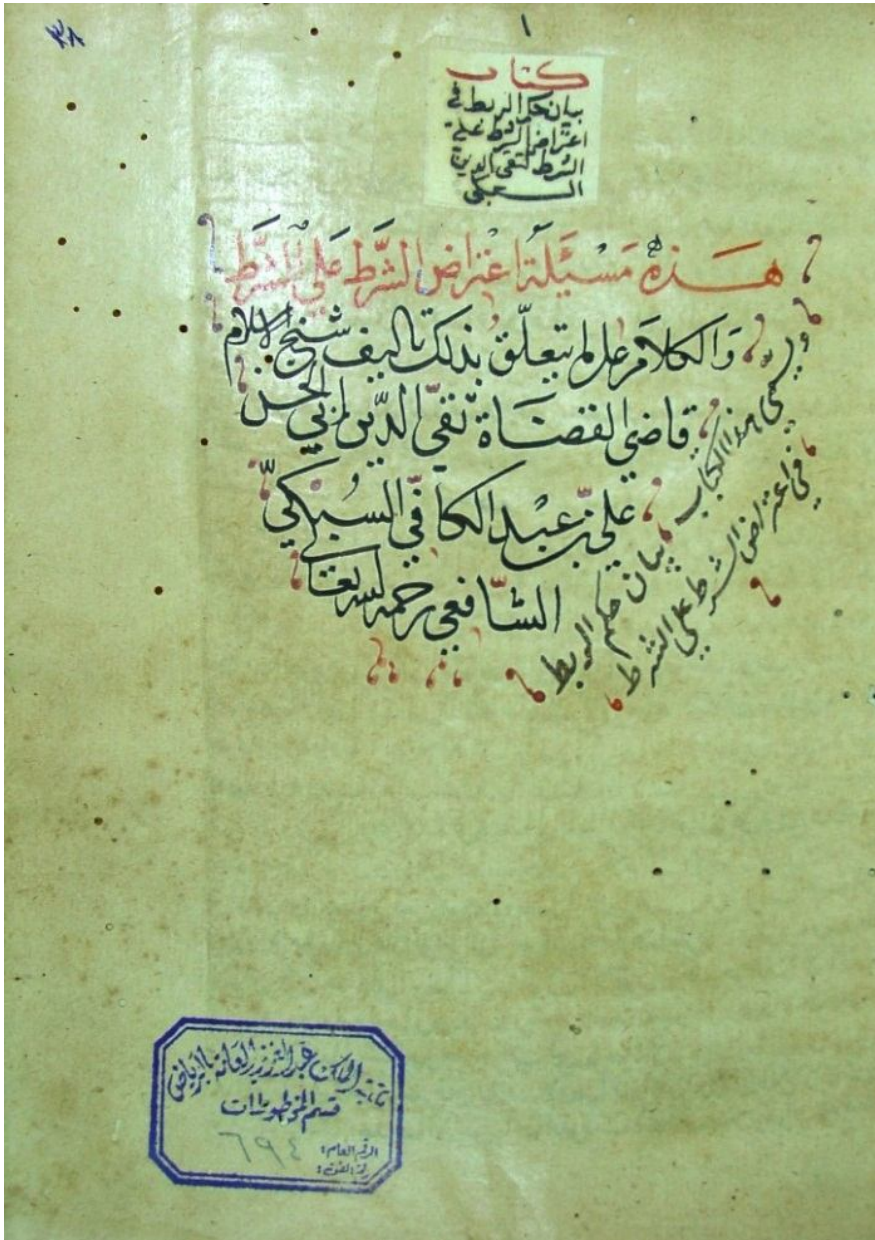 ٣٨
١
كتاب
بيان حكم الربط في
اعتراض الشرط على
الشرط لتقي الدين
السبكي
هذه مسئلة اعتراض الشرط على الشرط
والكلام على ما يتعلق بذلك تاليف شيخ الاسلام
قاضي القضاة تقي الدين ابي الحسن
علي بن عبد الكافي السبكي
الشافعي رحمه الله تعالى
ويسمى هذا الكتاب بيان حكم الربط
في اعتراض الشرط على الشرط
مكتبة الملك عبد العزيز العامة بالرياض
قسم المخطوطات
الرقم العام: ٦٩٤